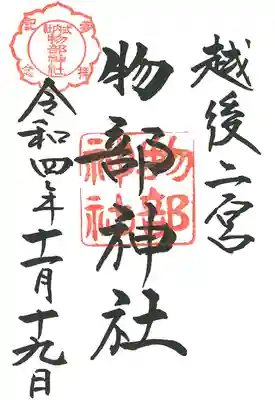 越後二宮
物部神社
物部
神社
令和四年十一月十九日
式内
物部神社
参拝
記念